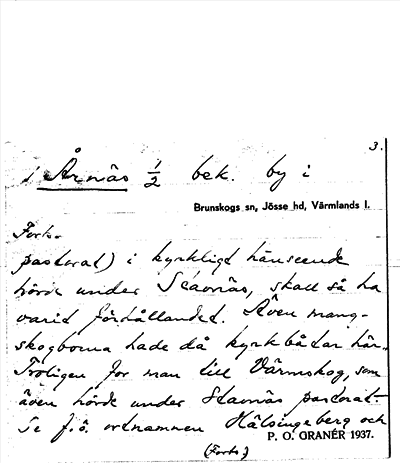 3.
i Årnäs 1/2 bek. by i
Brunskogs sn, Jösse hd, Värmlands l.
Forts.
pastorat) i kyrkligt hänseende
hörde under Stavnäs, skall så ha
varid förhållandet. Även mang-
skogborna hade då kyrkbåtar här.
Troligen for man till Värmskog, som
även hörde under Stavnäs pastorat-
Se f.ö. ortnamnen Hälsingeberg och
P. O. GRANÉR 1937.
(Forts)